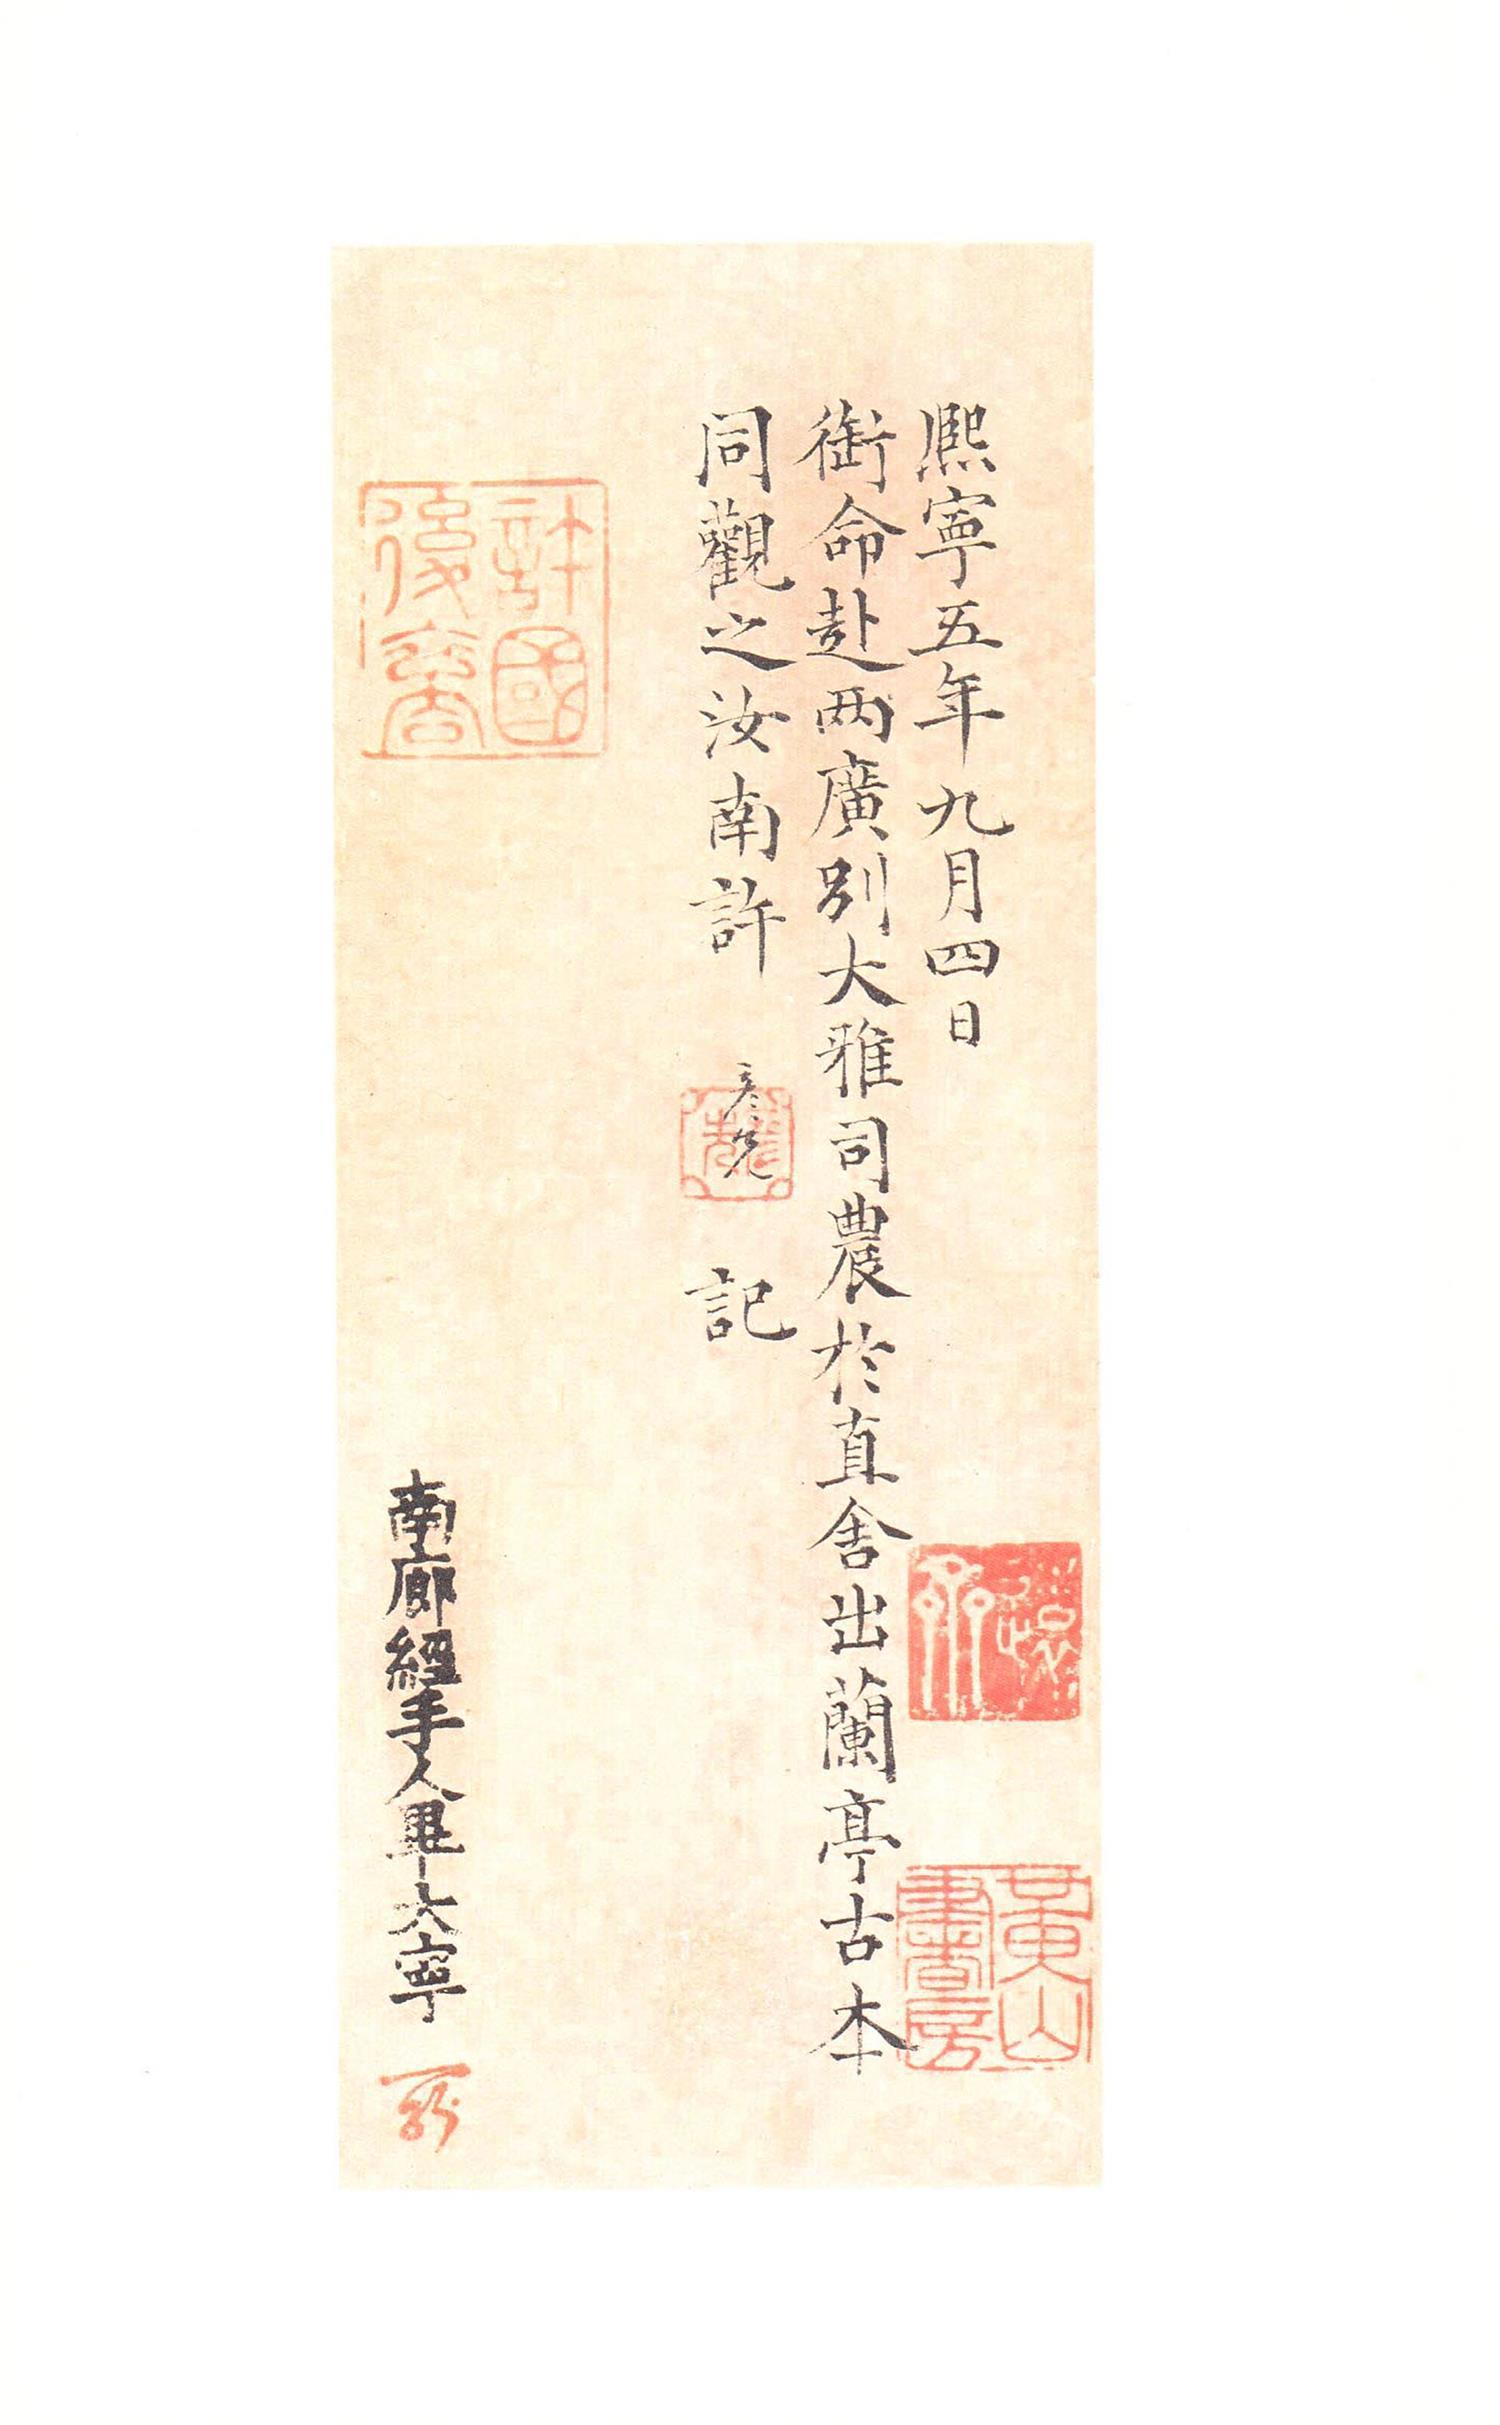 熙寧五年九月四日
銜命赴两廣別大雅司農於直舍出蘭亭古本
同觀之汝南許彥先記
許國後裔
黃山書房
南廊經手人畢大寧